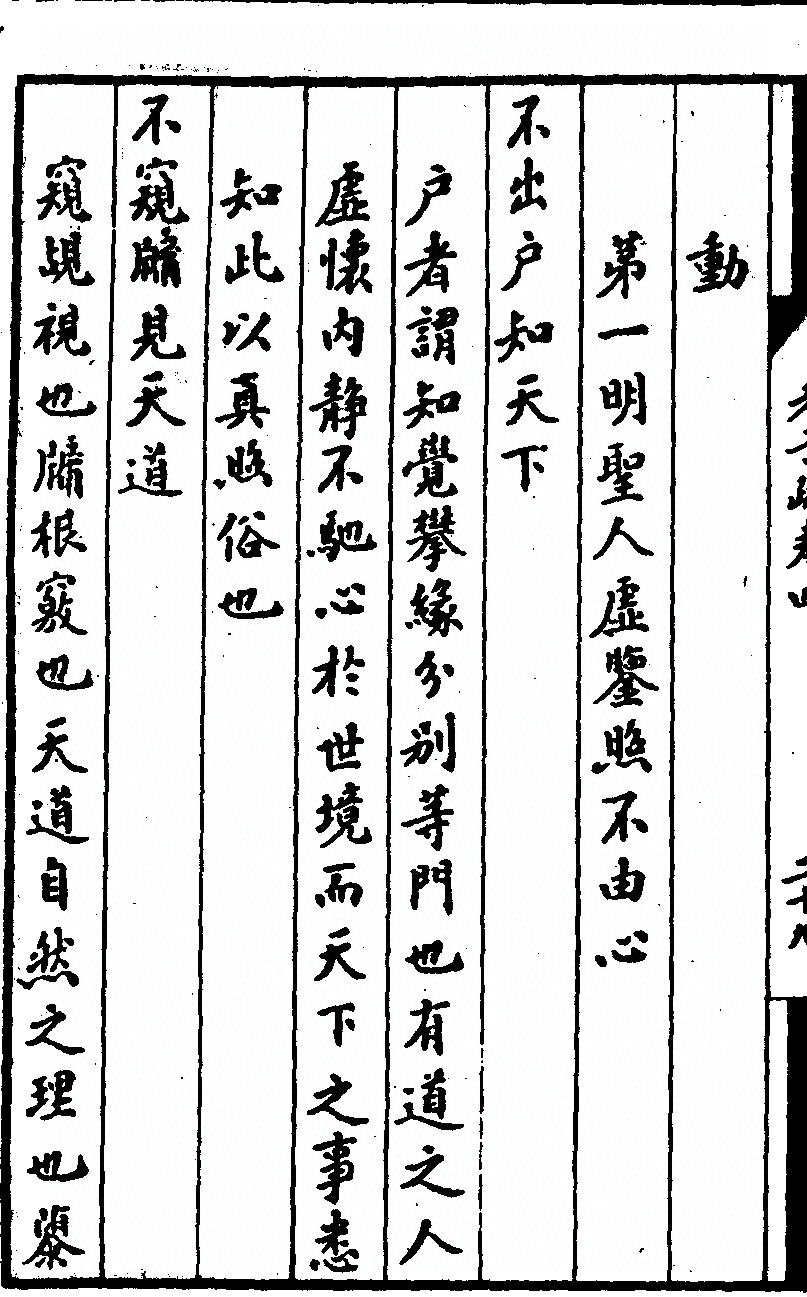 動
第一明聖人虛鑒照不由心
不出户知天下
户者謂知覺攀緣分別等門也有道之人
虛懷內静不馳心於世境而天下之事悉
知此以真照俗也
不窺牖見天道
窺覘視也牖根竅也天道自然之理也